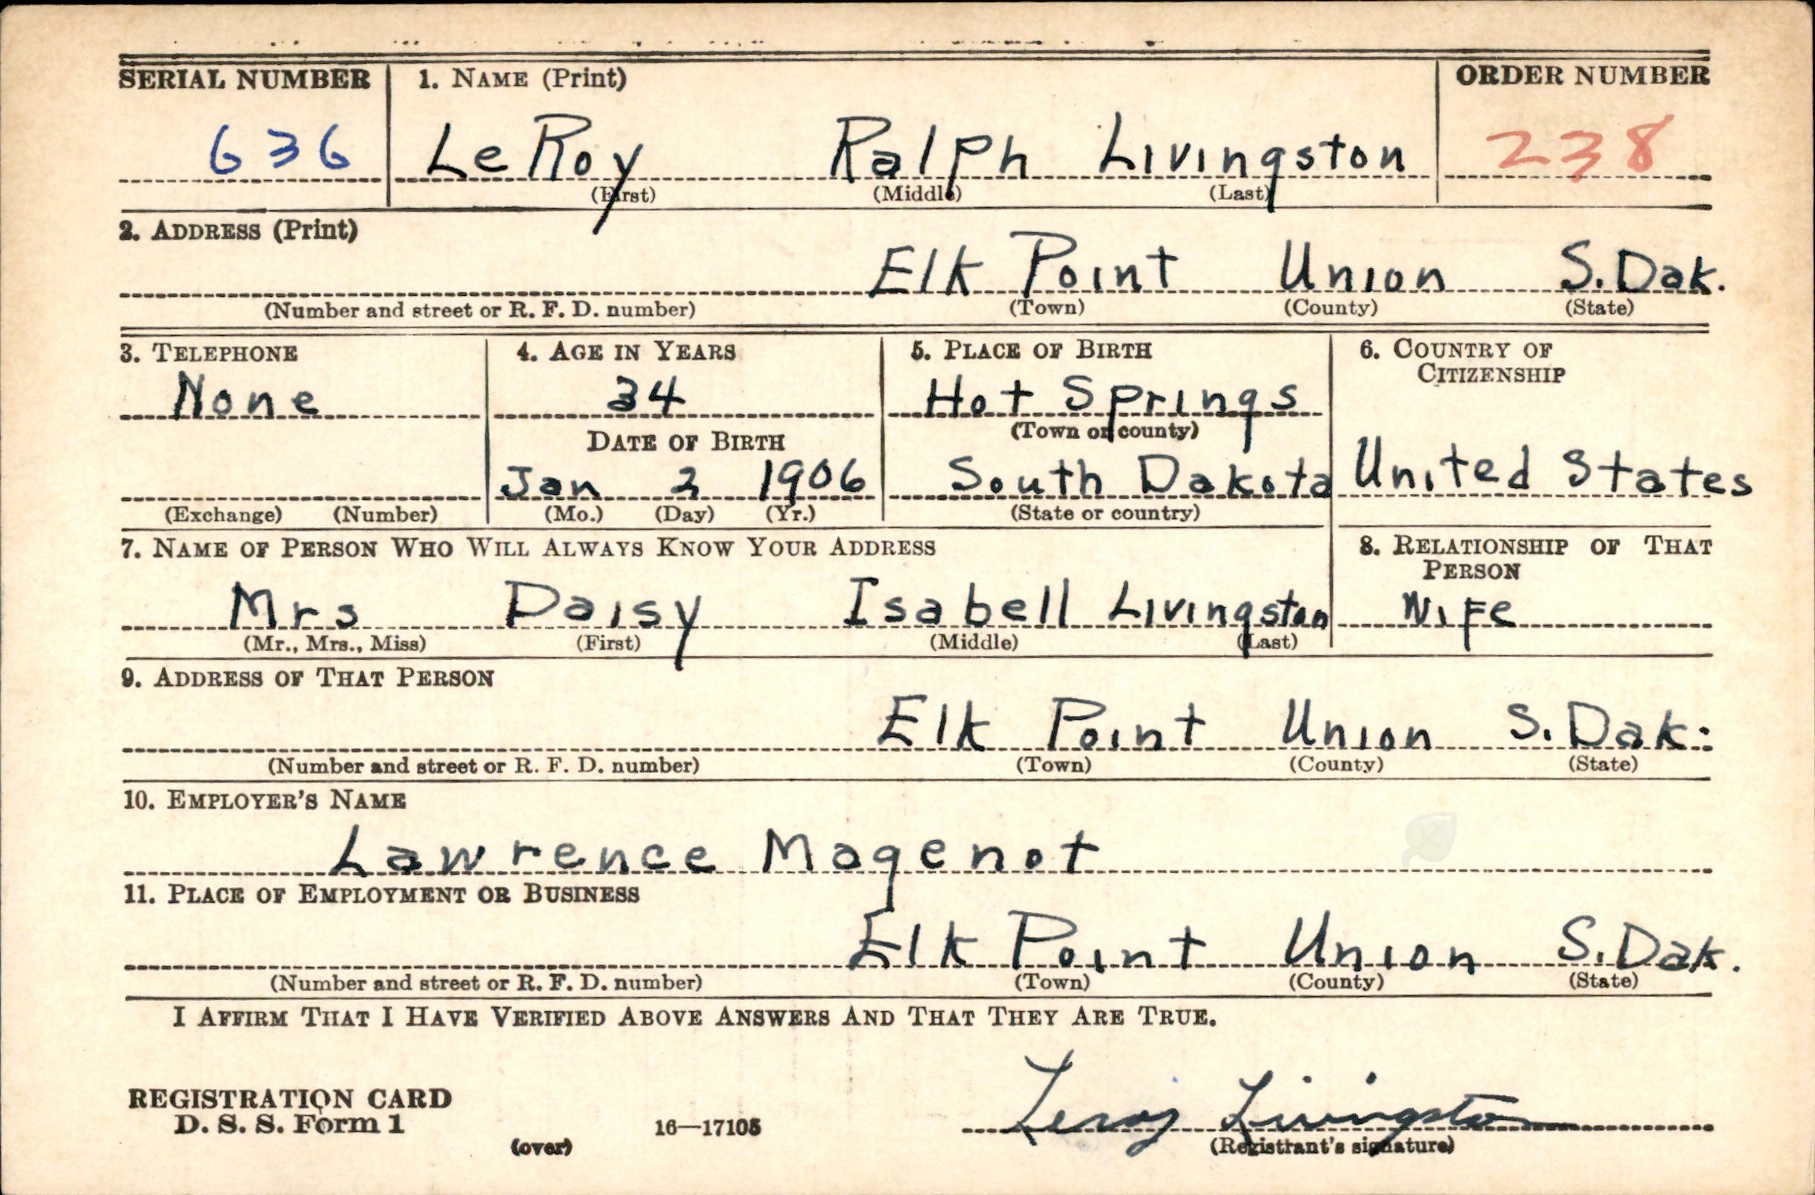 SERIAL NUMBER 1. NAME (Print) ORDER NUMBER
636 LeRoy Ralph Livingston 238
(First) (Middle) (Last)
2. ADDRESS (Print)
Elk Point Union S. Dak.
(Number and street or R. F. D. number) (Town) (County) (State)
3. TELEPHONE 4. AGE IN YEARS 5. PLACE OF BIRTH 6. COUNTRY OF CITIZENSHIP
None 34 Hot Springs
(Town or county)
DATE OF BIRTH
Jan 2 1906 South Dakota United States
(Exchange) (Number) (Mo.) (Day) (Yr.) (State or country)
7. NAME OF PERSON WHO WILL ALWAYS KNOW YOUR ADDRESS 8. RELATIONSHIP OF THAT PERSON
Mrs Daisy Isabell Livingston Wife
(Mr., Mrs., Miss) (First) (Middle) (Last)
9. ADDRESS OF THAT PERSON
Elk Point Union S. Dak.
(Number and street or R. F. D. number) (Town) (County) (State)
10. EMPLOYER'S NAME
Lawrence Magenot
11. PLACE OF EMPLOYMENT OR BUSINESS
Elk Point Union S. Dak.
(Number and street or R. F. D. number) (Town) (County) (State)
I AFFIRM THAT I HAVE VERIFIED ABOVE ANSWERS AND THAT THEY ARE TRUE.
REGISTRATION CARD
D. S. S. Form 1 16—17105 Leroy Livingston
(over) (Registrant's signature)